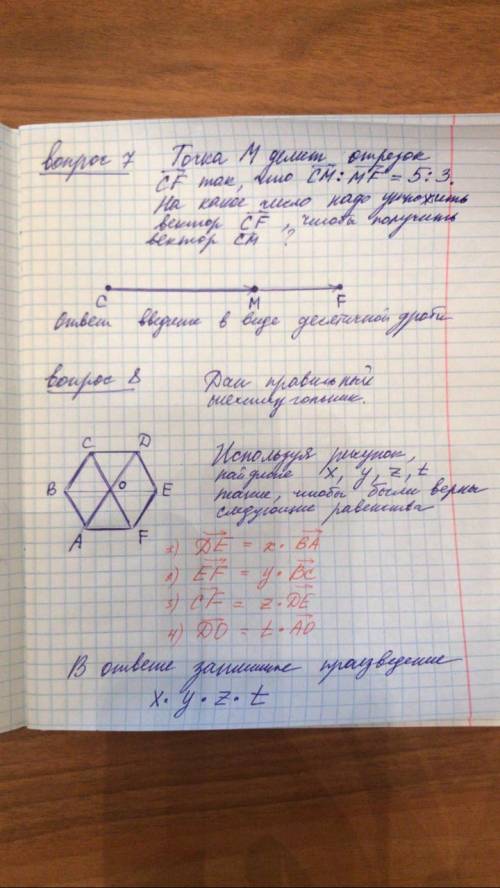 вопрос 7 Точка М делит отрезок
CF так, что CM : MF = 5 : 3.
На какое число надо умножить
вектор CF, чтобы получить
вектор CM ?
C M F
Ответ введите в виде десятичной дроби
вопрос 8 Дан правильный
шестиугольник.
C D
B O E
A F
Используя рисунок,
найдите x, y, z, t
такие, чтобы были верны
следующие равенства
1) DE = x · BA
2) EF = y · BC
3) CF = z · DE
4) DO = t · AO
В ответе запишите произведение
x · y · z · t